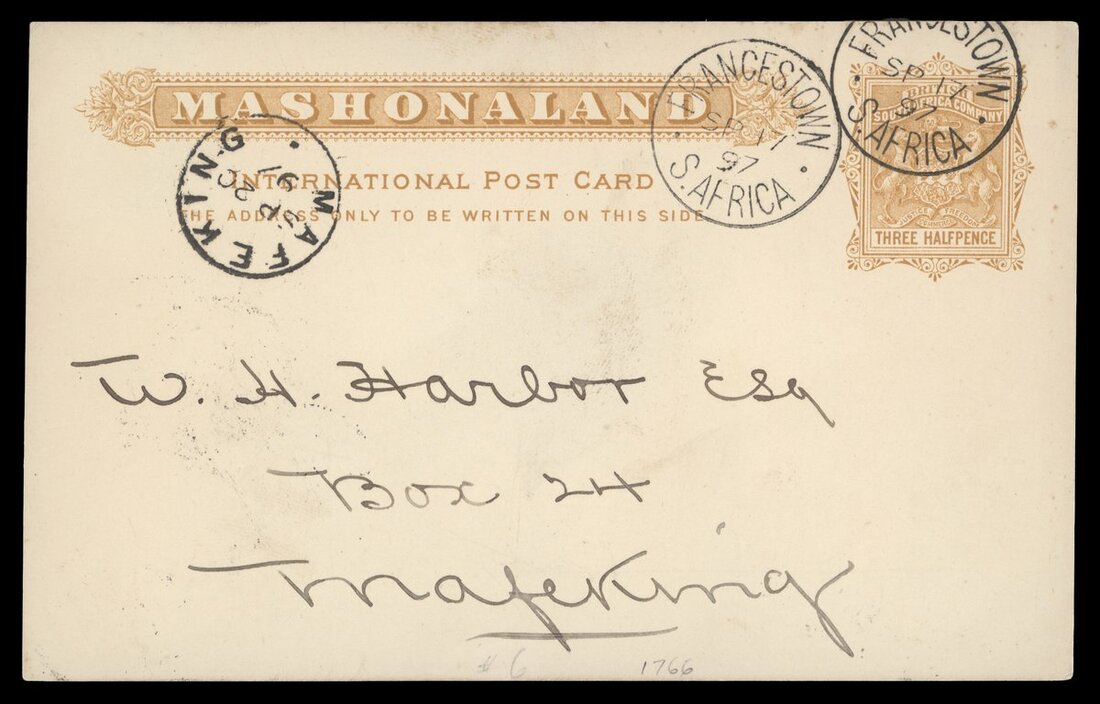 MASHONALAND
INTERNATIONAL POST CARD
THE ADDRESS ONLY TO BE WRITTEN ON THIS SIDE
FRANCESTOWN
SP 17
97
S. AFRICA
FRANCESTOWN
SP 17
97
S. AFRICA
BRITISH
SOUTH AFRICA COMPANY
JUSTICE FREEDOM
COMMERCE
THREE HALFPENCE
MAFEKING
97
W. H. Harbor Esq
Box 24
Mafeking
# 6
1766